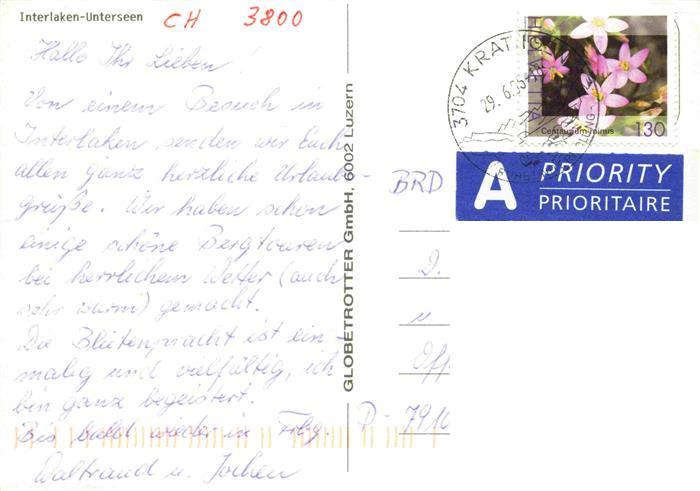 Interlaken-Unterseen
CH 3800
Hallo Ihr Lieben!
Von einem Besuch in
Interlaken senden wir Euch
allen ganz herzliche Urlaubs-
grüße. Wir haben schon
einige schöne Bergtouren
bei herrlichem Wetter (auch
sehr warm) gemacht.
Die Blütenpracht ist ein-
malig und vielfältig, ich
bin ganz begeistert.
Bis bald wieder in Frbg.
Waltraud u. Jochen
GLOBETROTTER GmbH, 6002 Luzern
3704 KRATTIGEN
29.6.
HELVETIA
Centaurium minus
130
A PRIORITY
PRIORITAIRE
BRD
D.
u
Off
D-7910